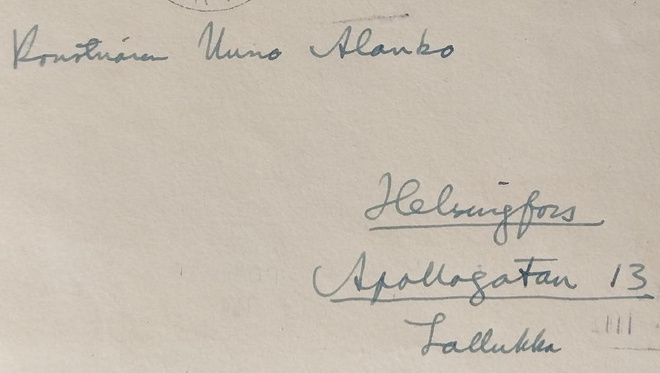 Konstnären Uuno Alanko
Helsingfors
Apollogatan 13
Lallukka